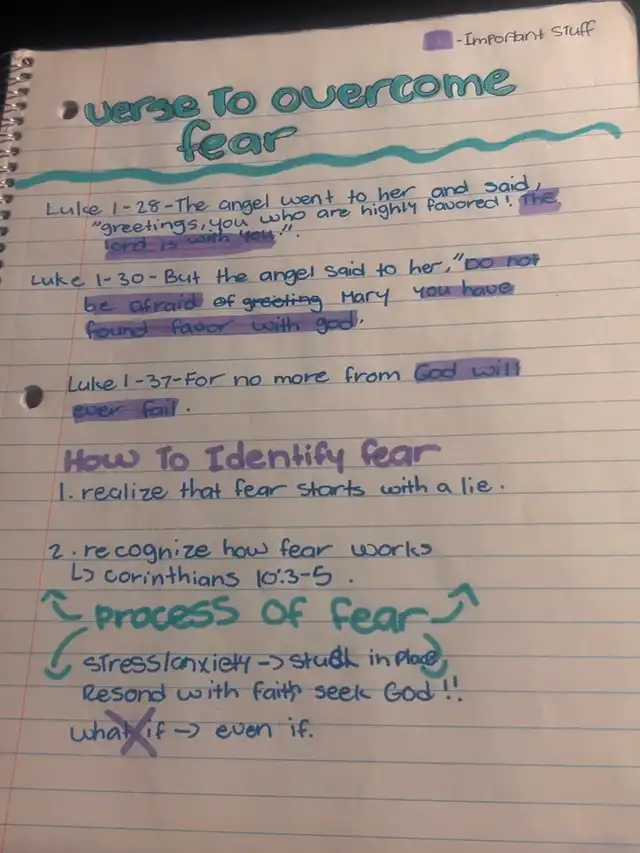 -Important Stuff
verse To overcome
fear
Luke 1-28-The angel went to her and said,
"greetings, you who are highly favored! The
lord is with you.".
Luke 1-30-But the angel said to her, "Do not
be afraid of greeting Mary you have
found favor with god.
Luke 1-37-For no more from God will
ever fail.
How To Identify fear
1. realize that fear starts with a lie.
2. recognize how fear works
↳ corinthians 10:3-5.
Process Of fear
stress/anxiety → stuck in place
Resond with faith seek God!!
what if → even if.